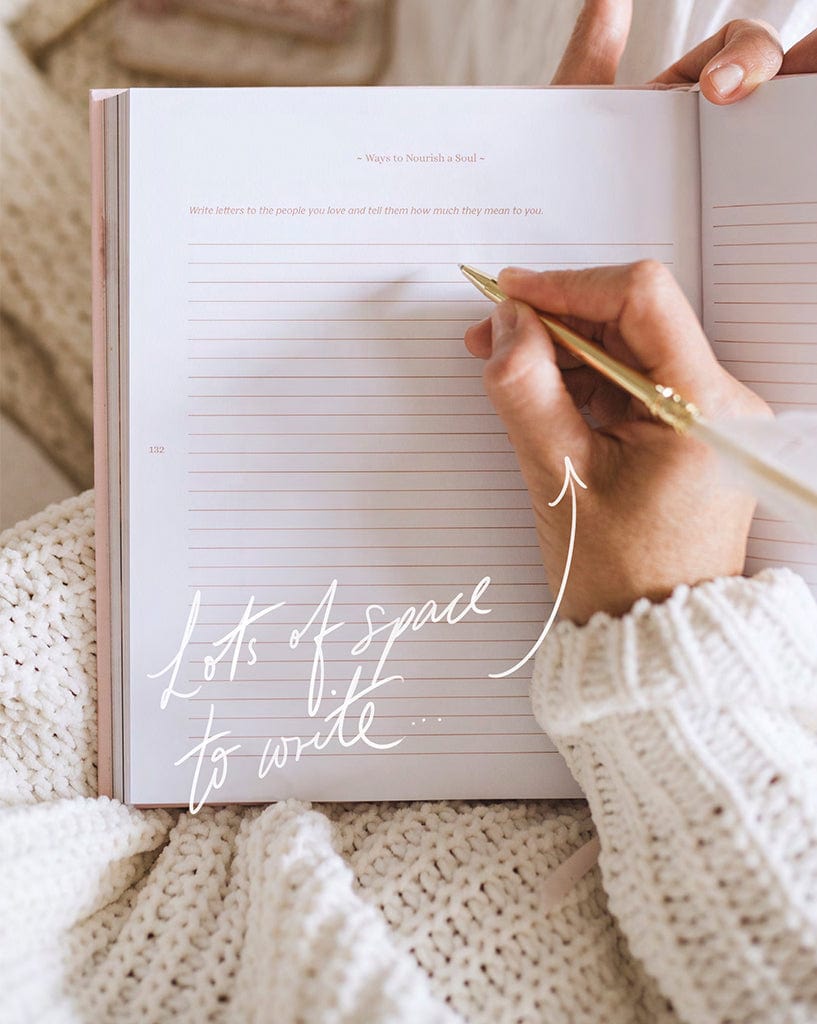 ~ Ways to Nourish a Soul ~
Write letters to the people you love and tell them how much they mean to you.
132
Lots of space
to write...